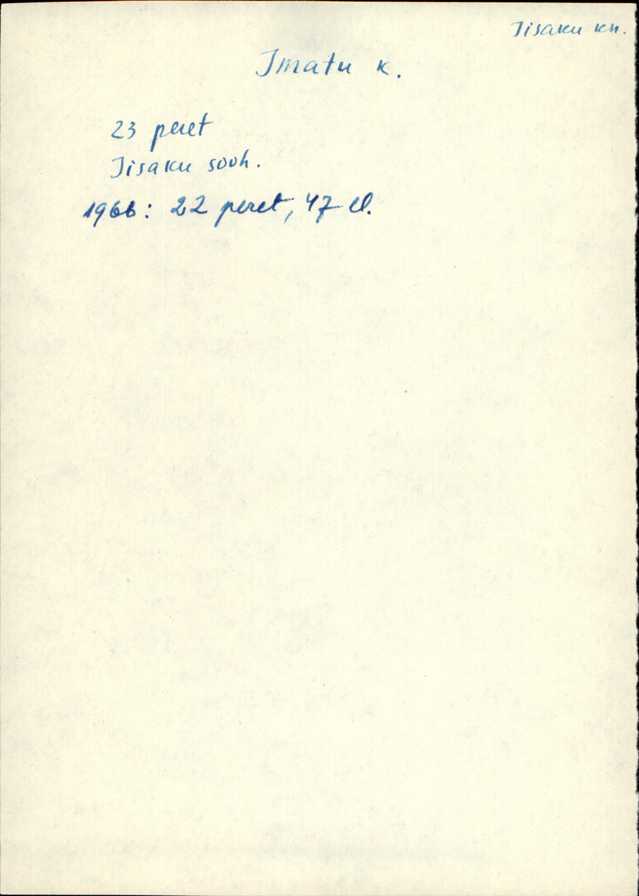 Iisaku kn.
Imatu k.
23 peret
Iisaku sovh.
1966: 22 peret, 47 el.